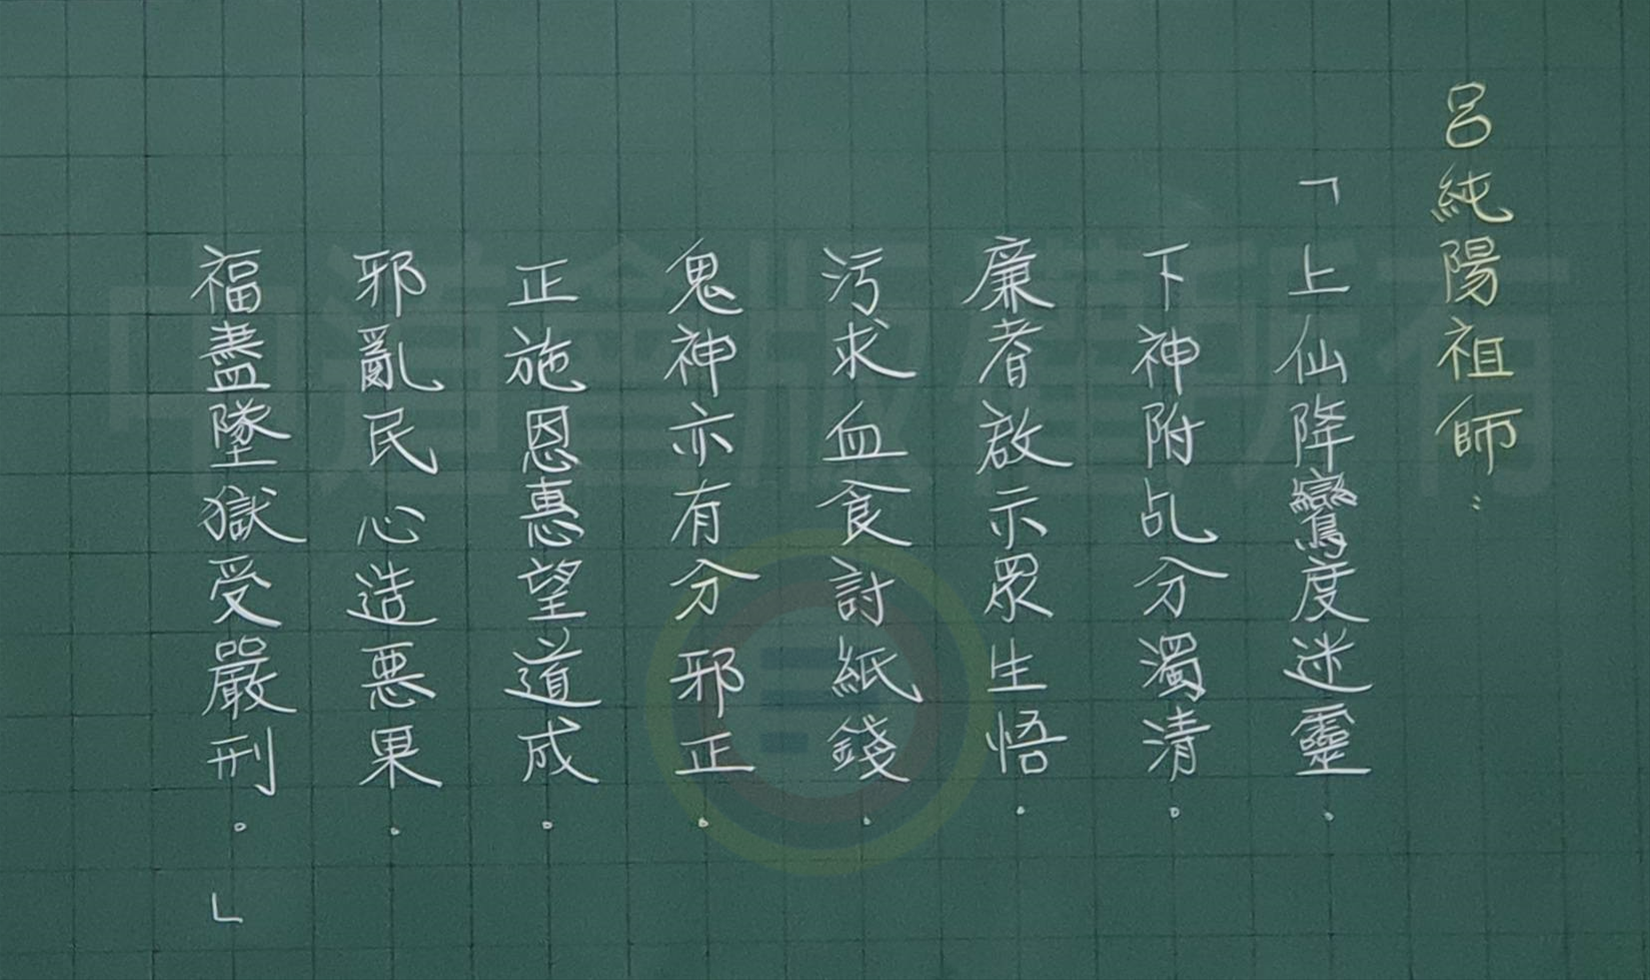 呂純陽祖師：
「上仙降鸞度迷靈。
下神附乩分濁清。
廉者啟示眾生悟。
污求血食討紙錢。
鬼神亦有分邪正。
正施恩惠望道成。
邪亂民心造惡果。
福盡墜獄受嚴刑。」
中道會版權所有